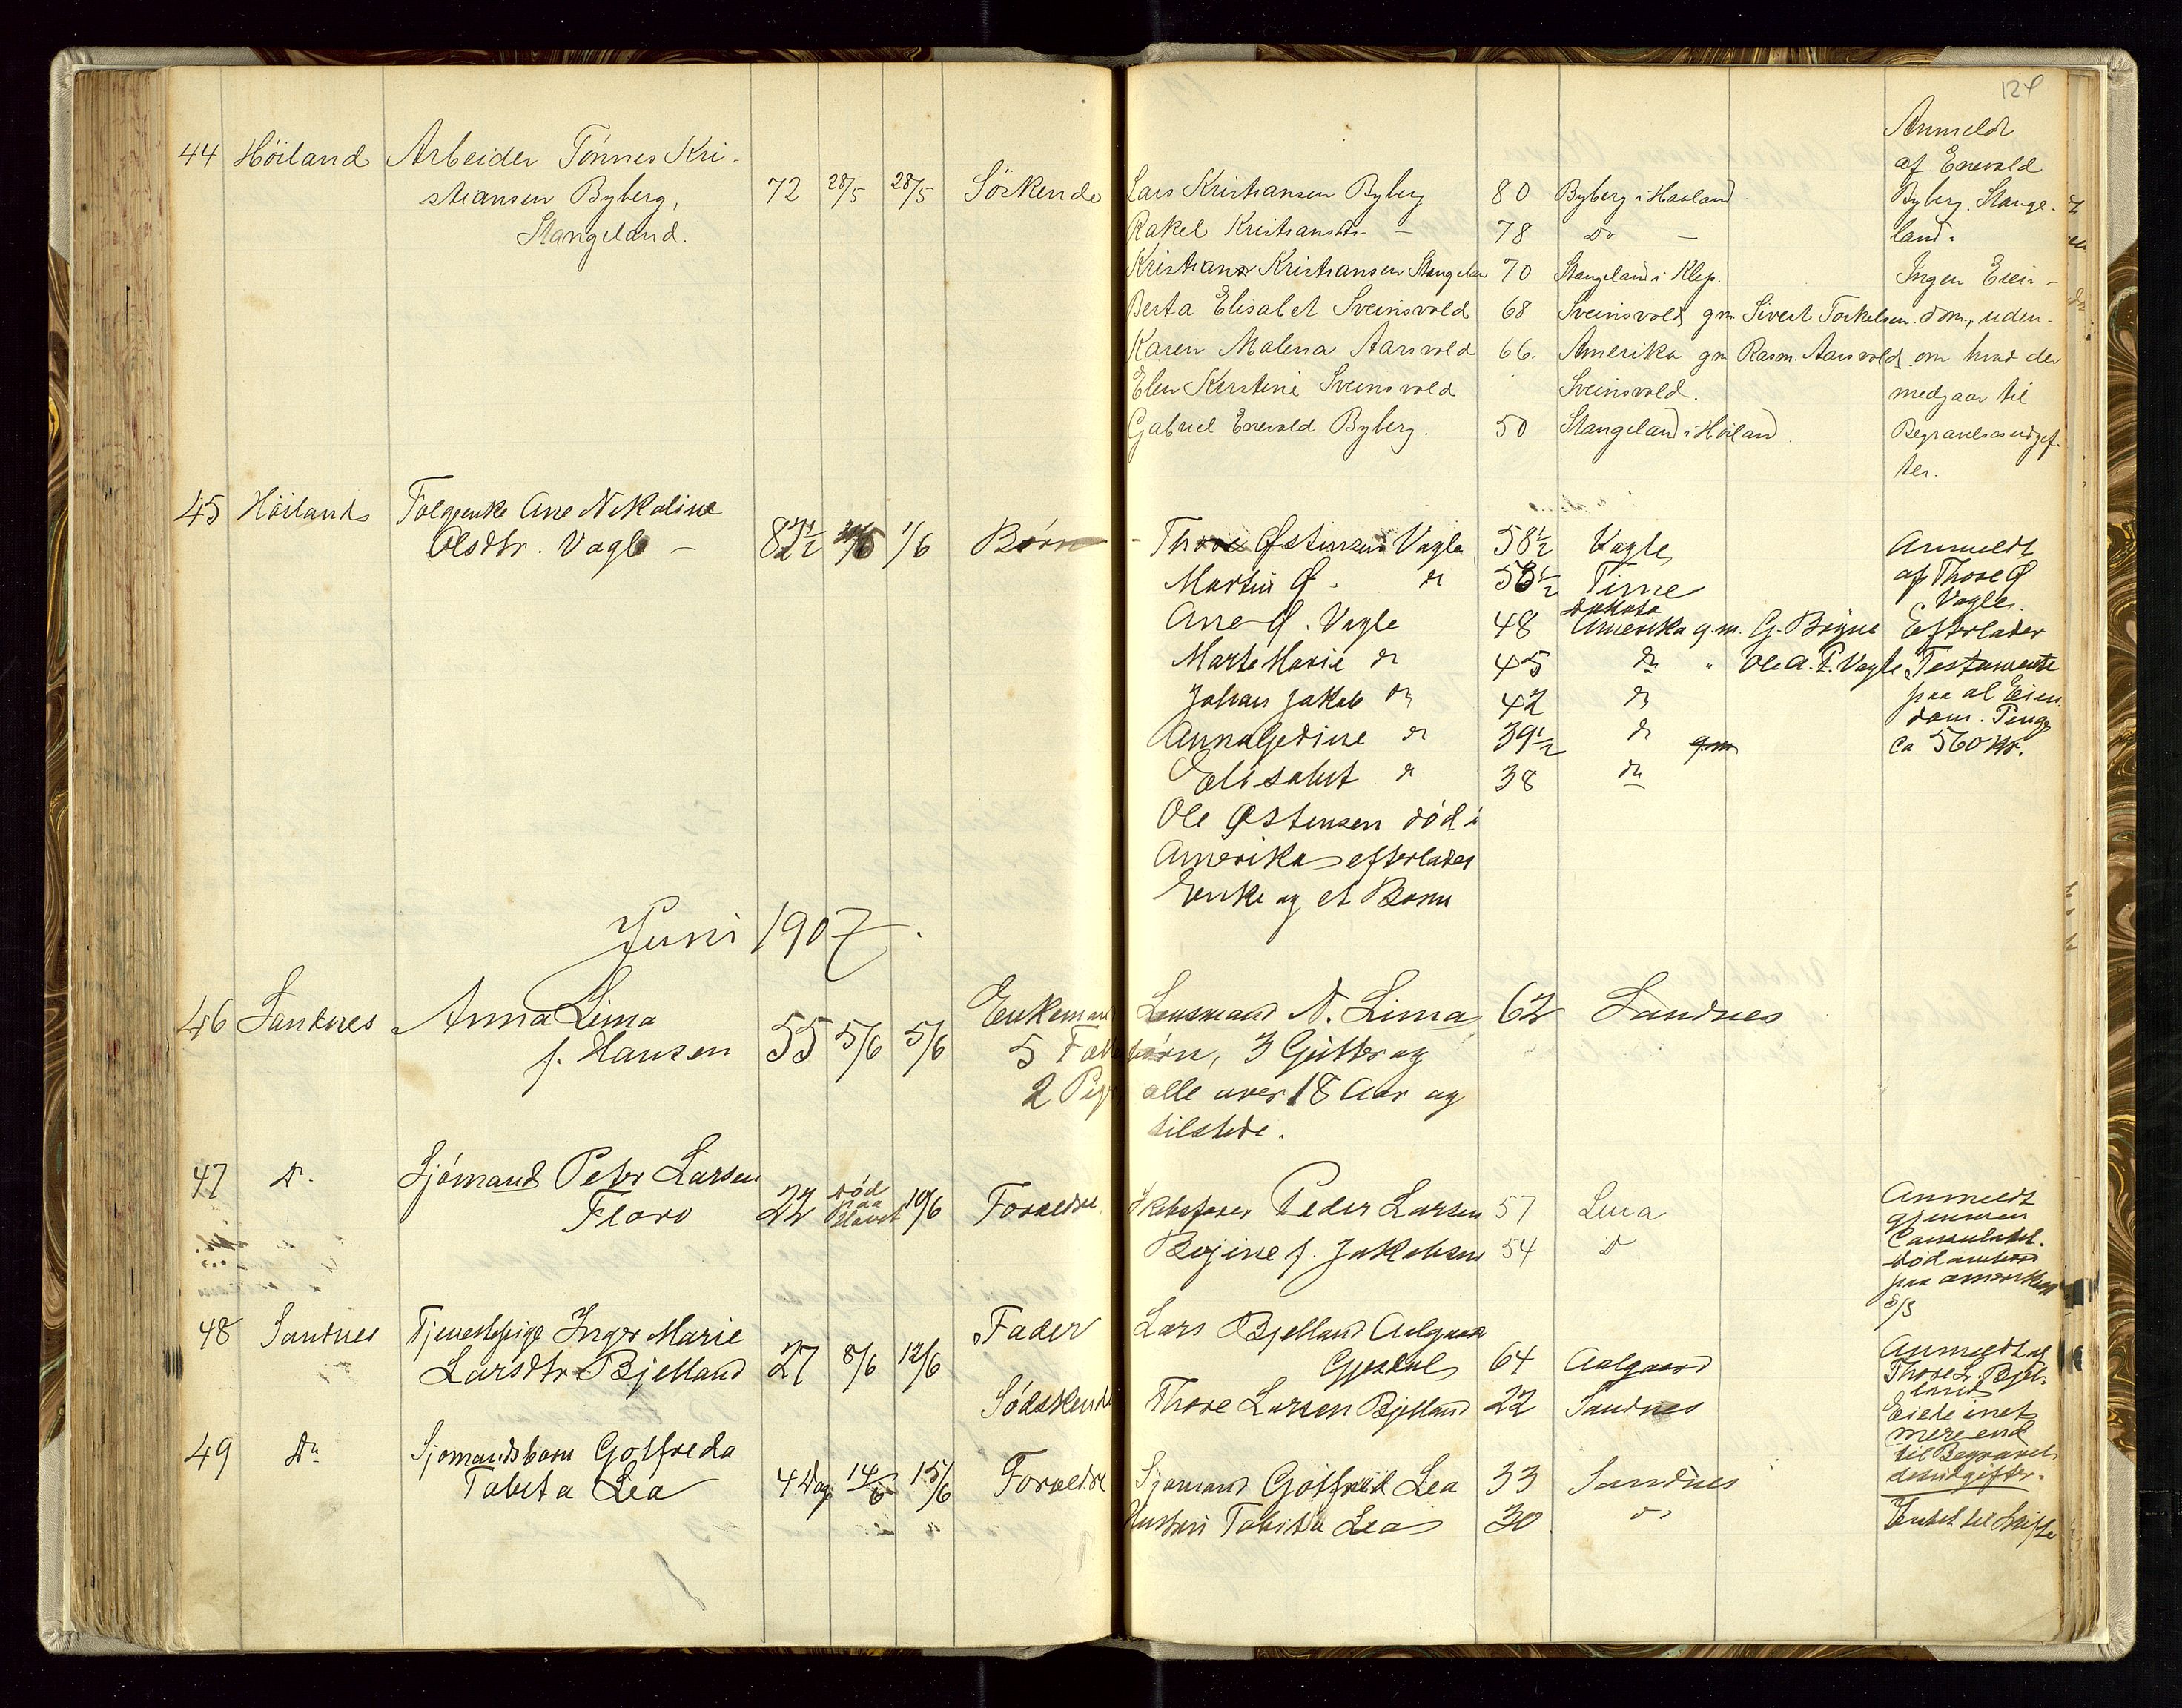 124
44 Höiland Arbeider Tönnes Kri-
stiansen Byberg, 72 28/5 28/5 Söskende
Stangeland.
Lars Kristiansen Byberg 80 Byberg i Haaland
Rakel Kristiansdtr — 78 Do —
Kristian Kristiansen Stangeland 70 Stangeland i Klep.
Berta Elisabet Sveinsvold 68 Sveinsvold gm. Sivert Torkelsen
Karen Malena Aarsvold 66. Amerika gm Rasm. Aarsvold
Elen Kirstine Sveinsvold Sveinsvold.
Gabriel Enevold Byberg. 50 Stangeland i Höiland.
Anmeldt
af Enevold
Byberg. Stange-
land.
Ingen Eien-
dom, uden-
om hvad der
medgaar til
Begravelsesudgif-
ter.
45 Höiland Folgeenke Ane Nikoline
Olsdtr. Vagle — 1/6 Børn
Thore Østensen Vagle 58½ Vagle
Martin Ø. do Time
Dakota
Ane Ø. Vagle 48 Amerika g.m. G. Bryne
Marte Marie do 45 do " Ole A. T. Vagle
Johan Jakob do 42 do
Anna Gedine do 39½ do gm
Elisabet do 38 do
Ole Østensen död i
Amerika efterlader
Enke og et Barn
Anmeldt
af Thore Ø
Vagle.
Efterlader
Testamente
paa al Eien
dom. Penge
ca 560 Kr.
Juni 1907.
46 Sandnes Anna Lima Enkemand Lensmand N. Lima 62 Sandnes
f. Hansen 55 5/6 5/6 5 Fællesbörn, 3 Gutter og
2 Piger alle over 18 Aar og
tilstede.
47 Do Sjómand Peter Larsen
Floro 22 Död paa Havet 10/6 Forældre Skibsfører Peder Larsen 57 Lura
Bojine f. Jakobsen 54 do
Anmeldt
gjennem
Consulatet.
död ombord
paa amerikansk
S/S
48 Sandnes Tjenestepige Inger Marie Fader Lars Bjelland Aalgaard
Larsdtr Bjelland 27 8/6 12/6 Gjesdal 64 Aalgaard
Södskende Thore Larsen Bjelland 22 Sandnes
Anmeldt af
Thore L. Bjel-
land
Eiede intet
mere end
til Begravel-
sesudgifter.
49 Do Sjomandsbarn Gotfreda
Tabita Lea 4 Dag 14/6 15/6 Forældre Sjömand Gotfred Lea 33 Sandnes
Hustru Tabita Lea 30 do
Intet til Skifte